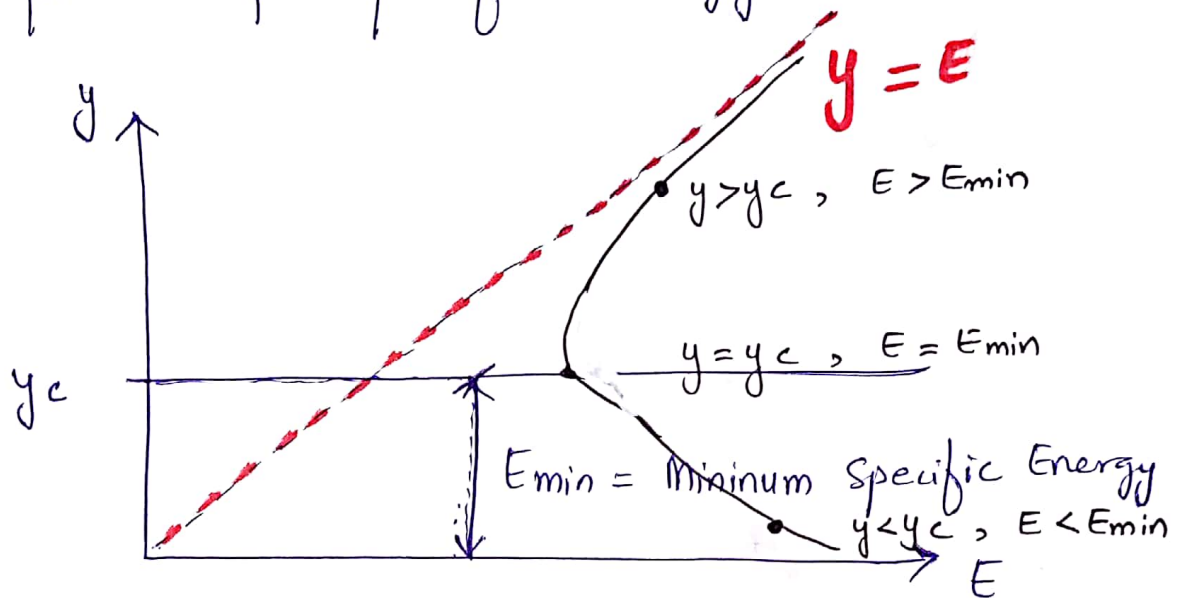 y
y = E
y>yc , E > Emin
y = yc , E = Emin
yc
Emin = Mininum Specific Energy
y<yc , E < Emin
E